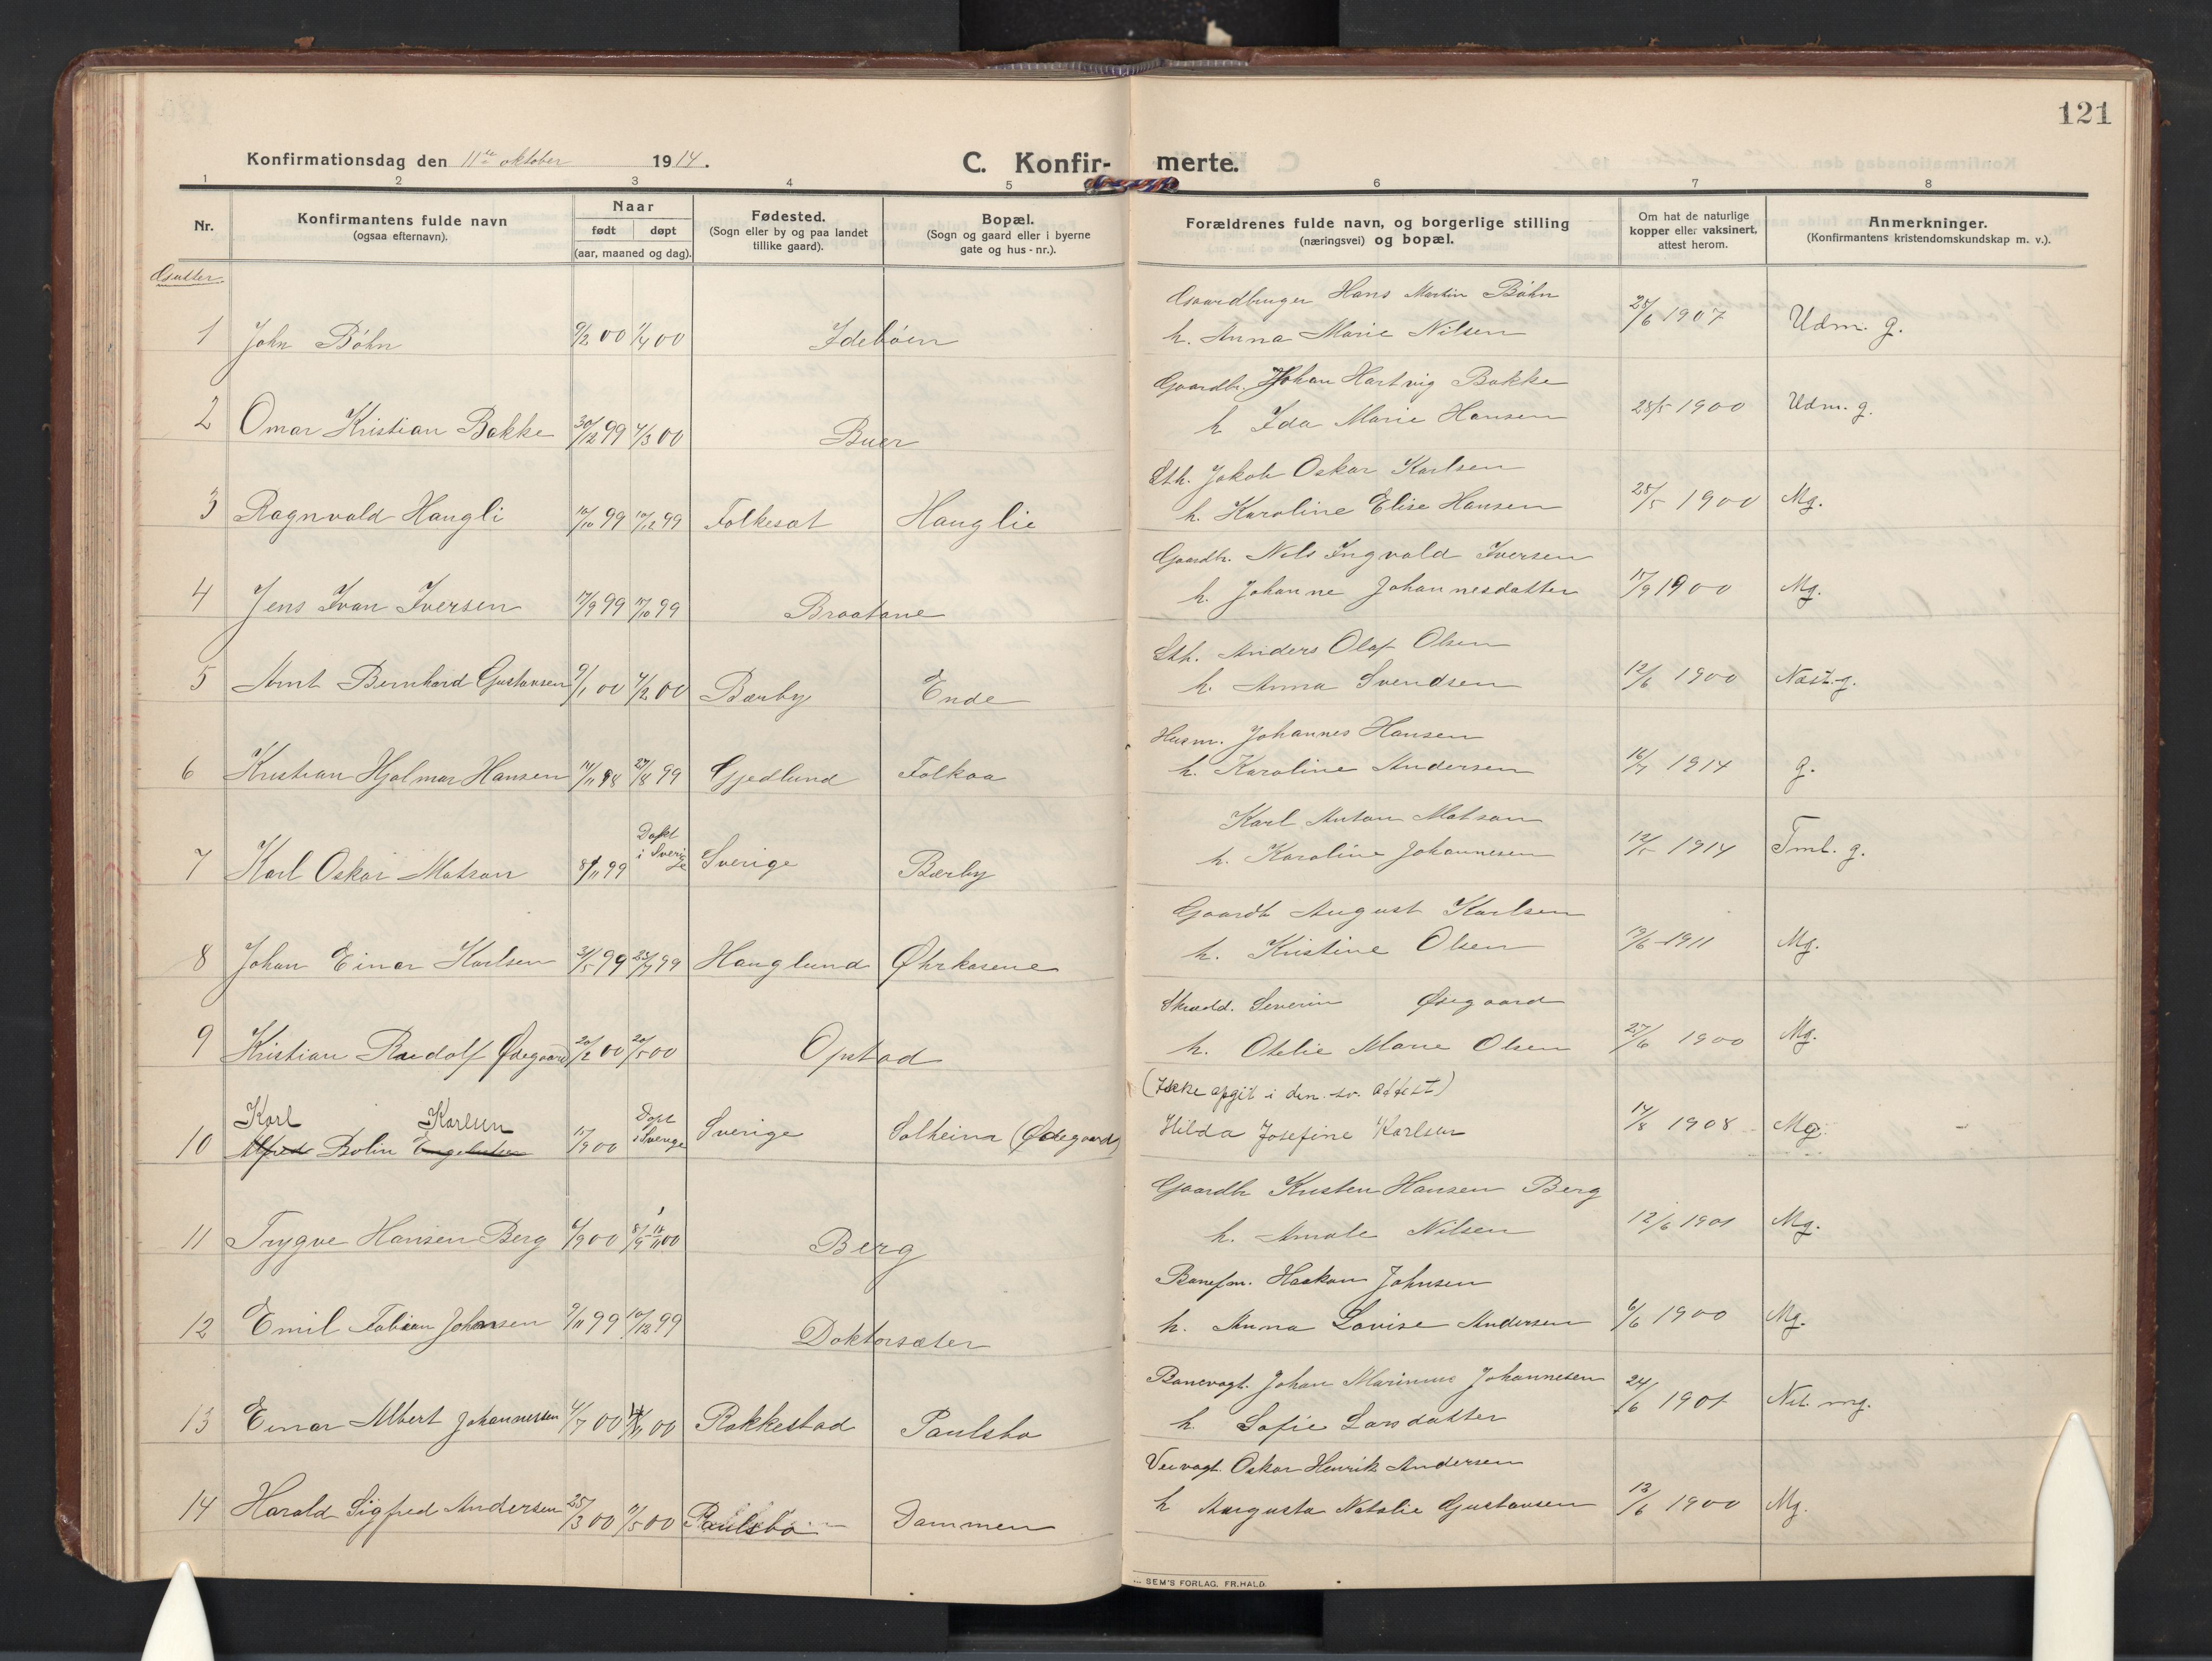 121
Konfirmationsdag den 11te oktober 1914.
C. Konfir- merte.
1 2 3 4 5 6 7 8
Nr.
Konfirmantens fulde navn
(ogsaa efternavn).
Naar
født døpt
(aar, maaned og dag).
Fødested.
(Sogn eller by og paa landet
tillike gaard).
Bopæl.
(Sogn og gaard eller i byerne
gate og hus-nr.).
Forældrenes fulde navn, og borgerlige stilling
(næringsvei) og bopæl.
Om hat de naturlige
kopper eller vaksinert,
attest herom.
Anmerkninger.
(Konfirmantens kristendomskundskap m. v.).
Gutter.
Gaardbruger Hans Martin Böhn
1 John Böhn 9/2 00 1/4 00 Idebøen h. Anna Marie Nilsen 25/6 1907 Udm. g.
Gaardbr. Johan Hartvig Bakke
2 Omar Kristian Bakke 30/12 99 4/3 00 Buer h Ida Marie Hansen 28/5 1900 Udm. g.
Sth. Jakob Oskar Karlsen
3 Ragnvald Haugli 10/10 99 10/12 99 Folkesat Hauglie h. Karoline Elise Hansen 28/5 1900 Mg.
Gaardb. Nils Ingvald Iversen
4 Jens Ivan Iversen 17/9 99 17/10 99 Braatane h. Johanne Johannesdatter 17/9 1900 Mg.
Sth. Anders Olaf Olsen
5 Arnt Bernhard Gustavsen 9/1 00 4/2 00 Bærby Ende h. Anna Svendsen 12/6 1900 Næst. g.
Husm. Johannes Hansen
6 Kristian Hjalmar Hansen 14/11 98 27/8 99 Gjedlund Folkaa h. Karoline Andersen 16/7 1914 g.
Karl Anton Matson
7 Karl Oskar Matson 8/11 99 Døpt i Sverige Sverige Bærby h. Karoline Johannesen 12/5 1914 Tml. g.
Gaardb August Karlsen
8 Johan Einar Karlsen 31/5 99 23/7 99 Hauglund Øhrkasene h. Kristine Olsen 19/6 1911 Mg.
Skredd. Severin Ødegaard
9 Kristian Rudolf Ødegaard 20/2 00 20/5 00 Opstad h. Otelie Marie Olsen 27/6 1900 Mg.
(Ikke opgit i den sv. attest)
Karl Karlsen
10 Alfred Bolin Engebretsen 17/9 00 Døpt i Sverige Sverige Solheim (Ødegaard) Hilda Josefine Karlsen 14/8 1908 Mg.
Gaardb Kristen Hansen Berg
11 Trygve Hansen Berg 6/9 00 8/9 11/11 00 Berg h. Amale Nilsen 12/6 1901 Mg.
Banefm. Haakon Johnsen
12 Emil Fabian Johansen 9/11 99 10/12 99 Doktorsæter h. Anna Lovise Andersen 6/6 1900 Mg.
Banevagt. Johan Marinius Johannesen
13 Einar Albert Johannessen 4/7 00 00 Rakkestad Paulsbo h. Sofie Larsdatter 24/6 1901 Nil. mg.
Veivagt. Oskar Henrik Andersen
14 Harald Sigfred Andersen 25/3 00 11/5 00 Paulsbo Dammen h Augusta Natalie Gustavsen 13/6 1900 Mg.
SEM'S FORLAG, FR.HALD.